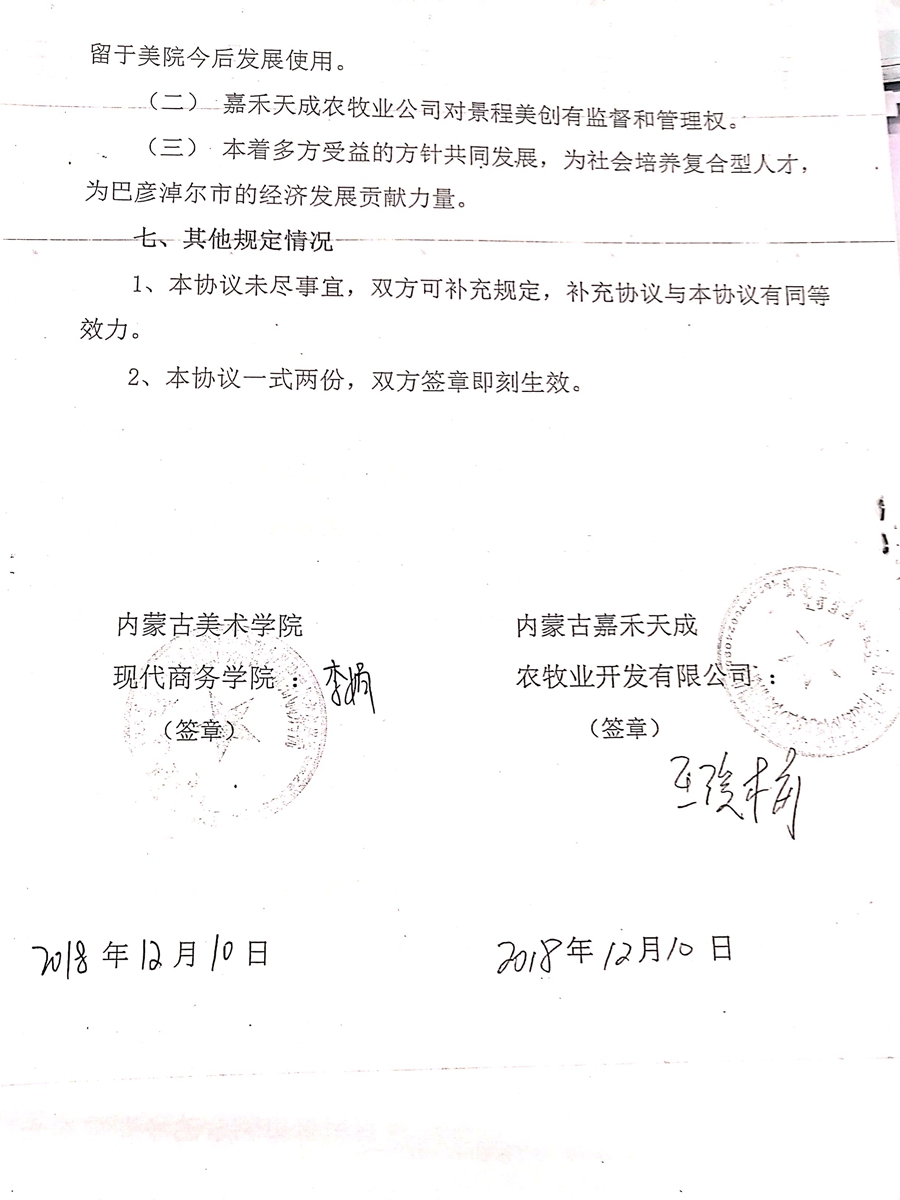 留于美院今后发展使用。
（二） 嘉禾天成农牧业公司对景程美创有监督和管理权。
（三） 本着多方受益的方针共同发展，为社会培养复合型人才，
为巴彦淖尔市的经济发展贡献力量。
七、其他规定情况
1、本协议未尽事宜，双方可补充规定，补充协议与本协议有同等
效力。
2、本协议一式两份，双方签章即刻生效。
内蒙古美术学院
现代商务学院 ：
（签章）
内蒙古嘉禾天成
农牧业开发有限公司：
（签章）
2018年12月10日
2018年12月10日